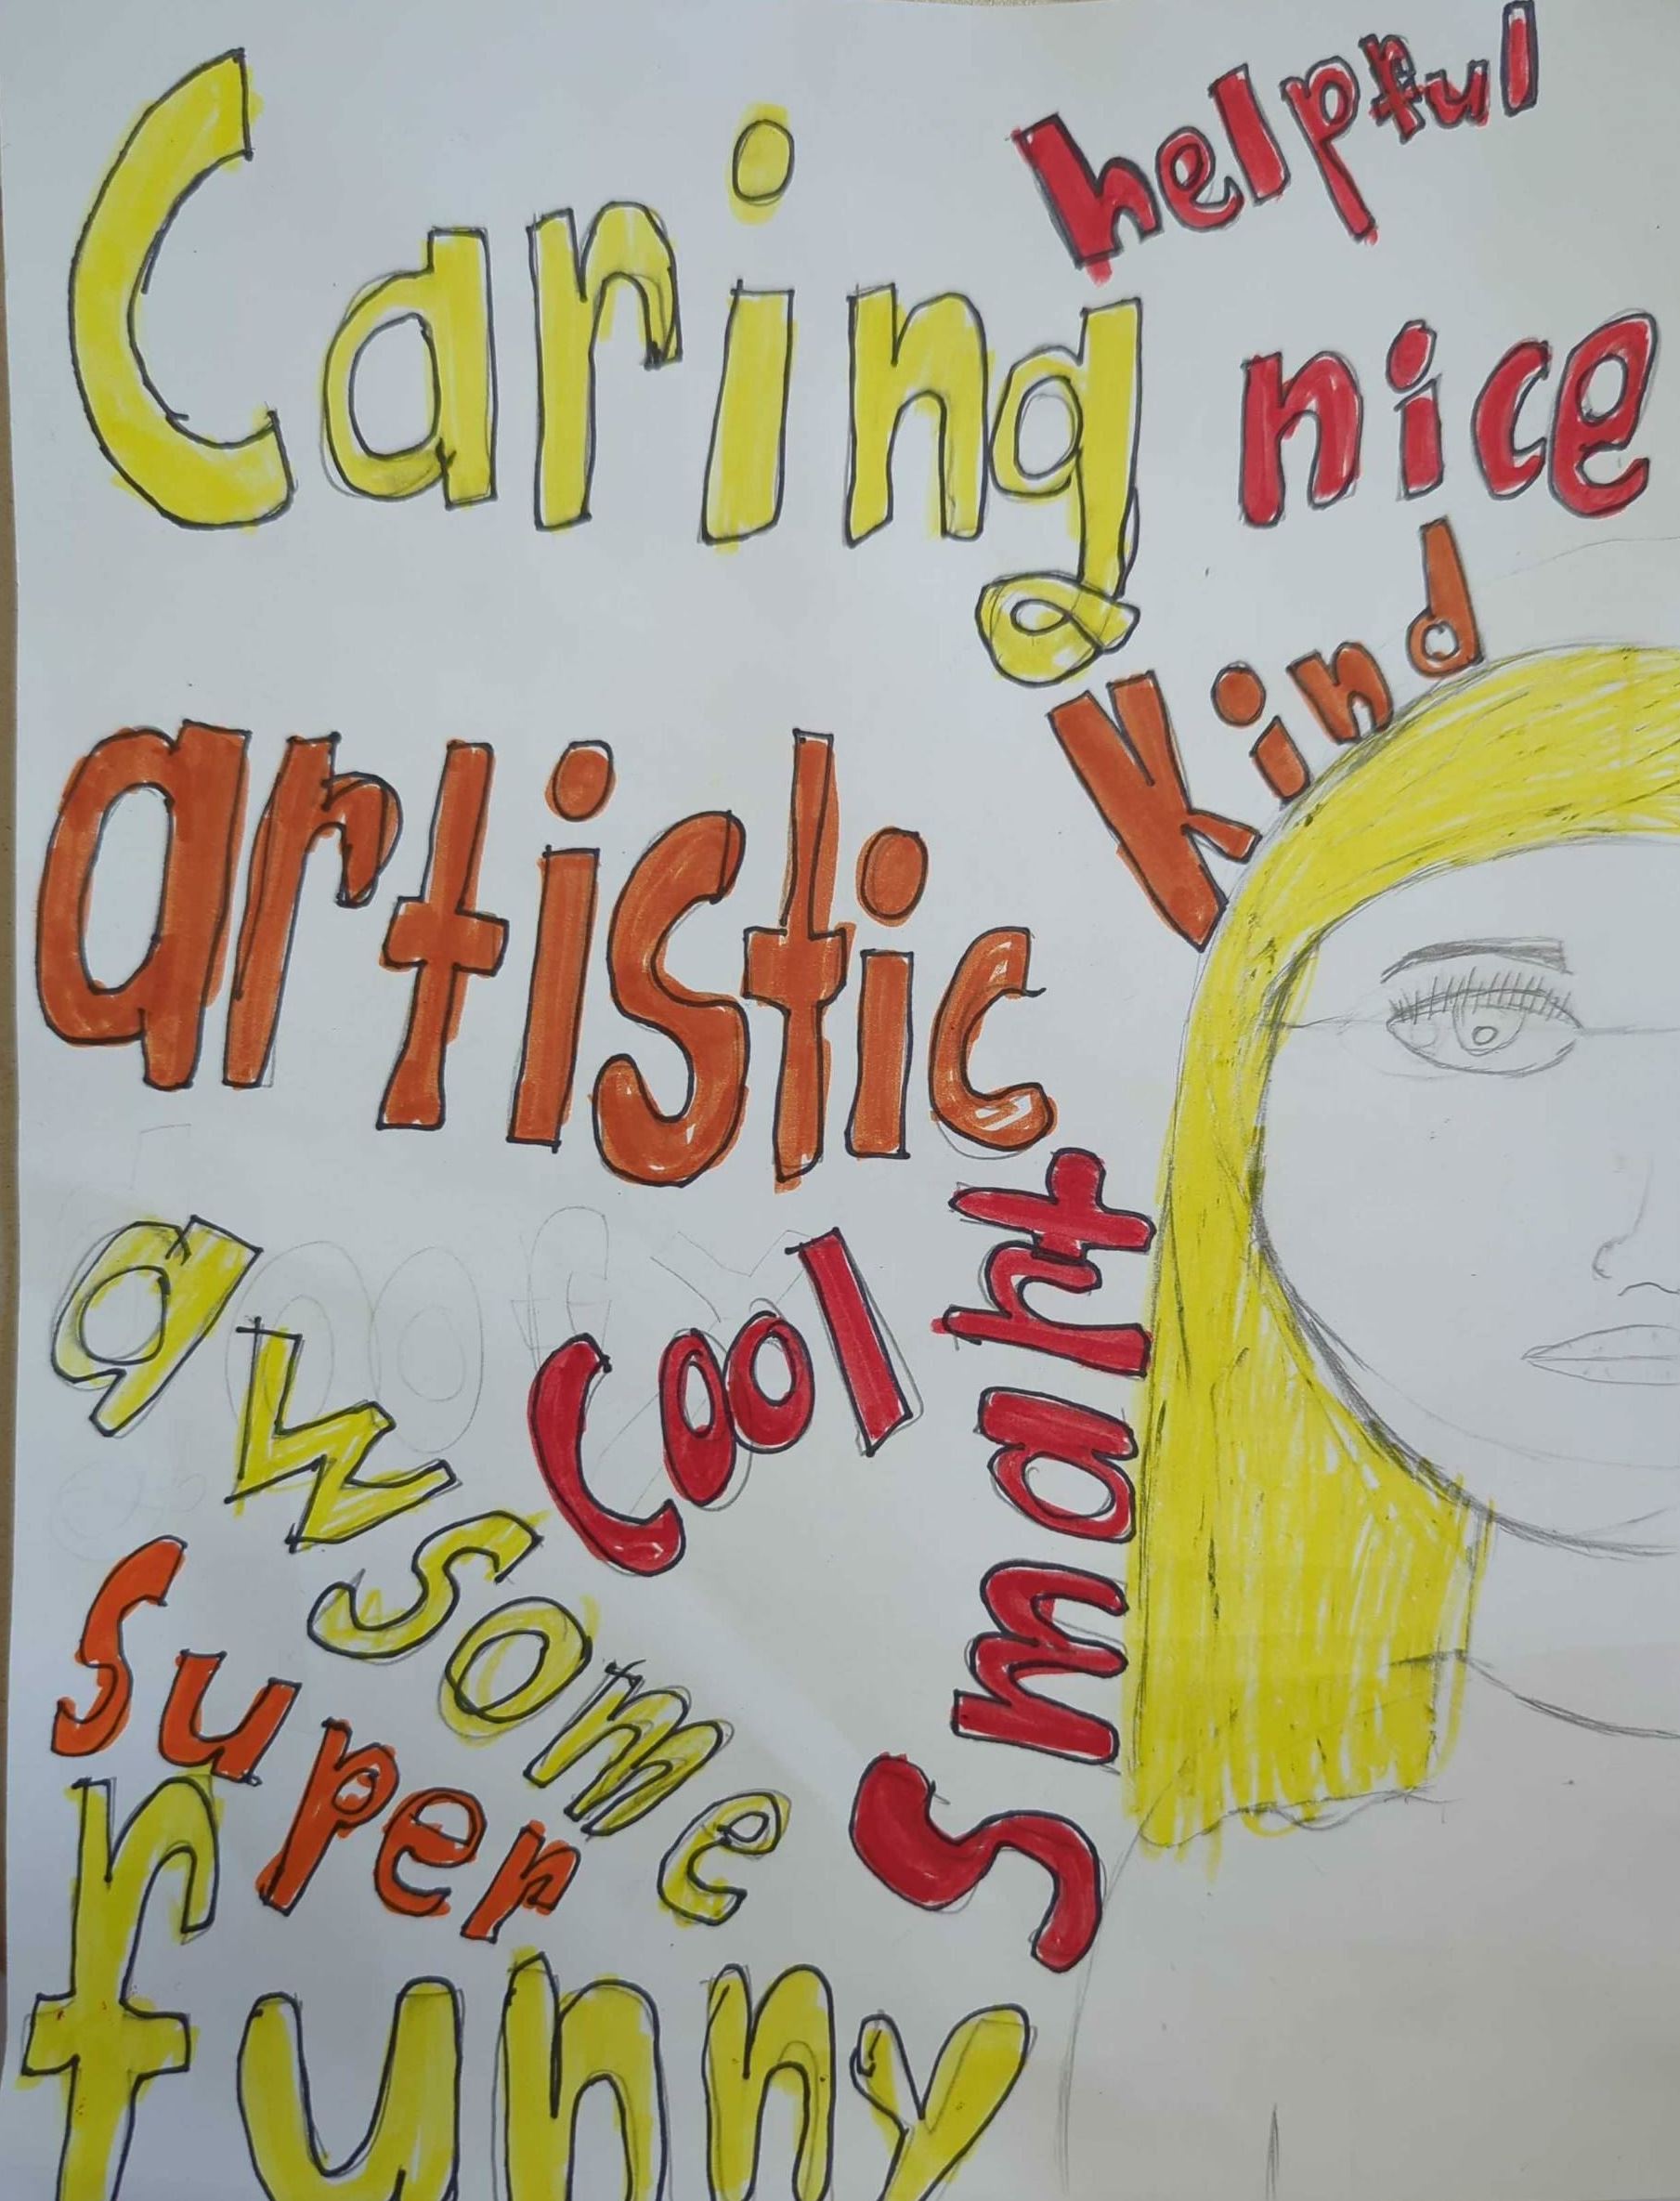 Caring
helpful
nice
Kind
artistic
awsome
Cool
Smart
Super
funny